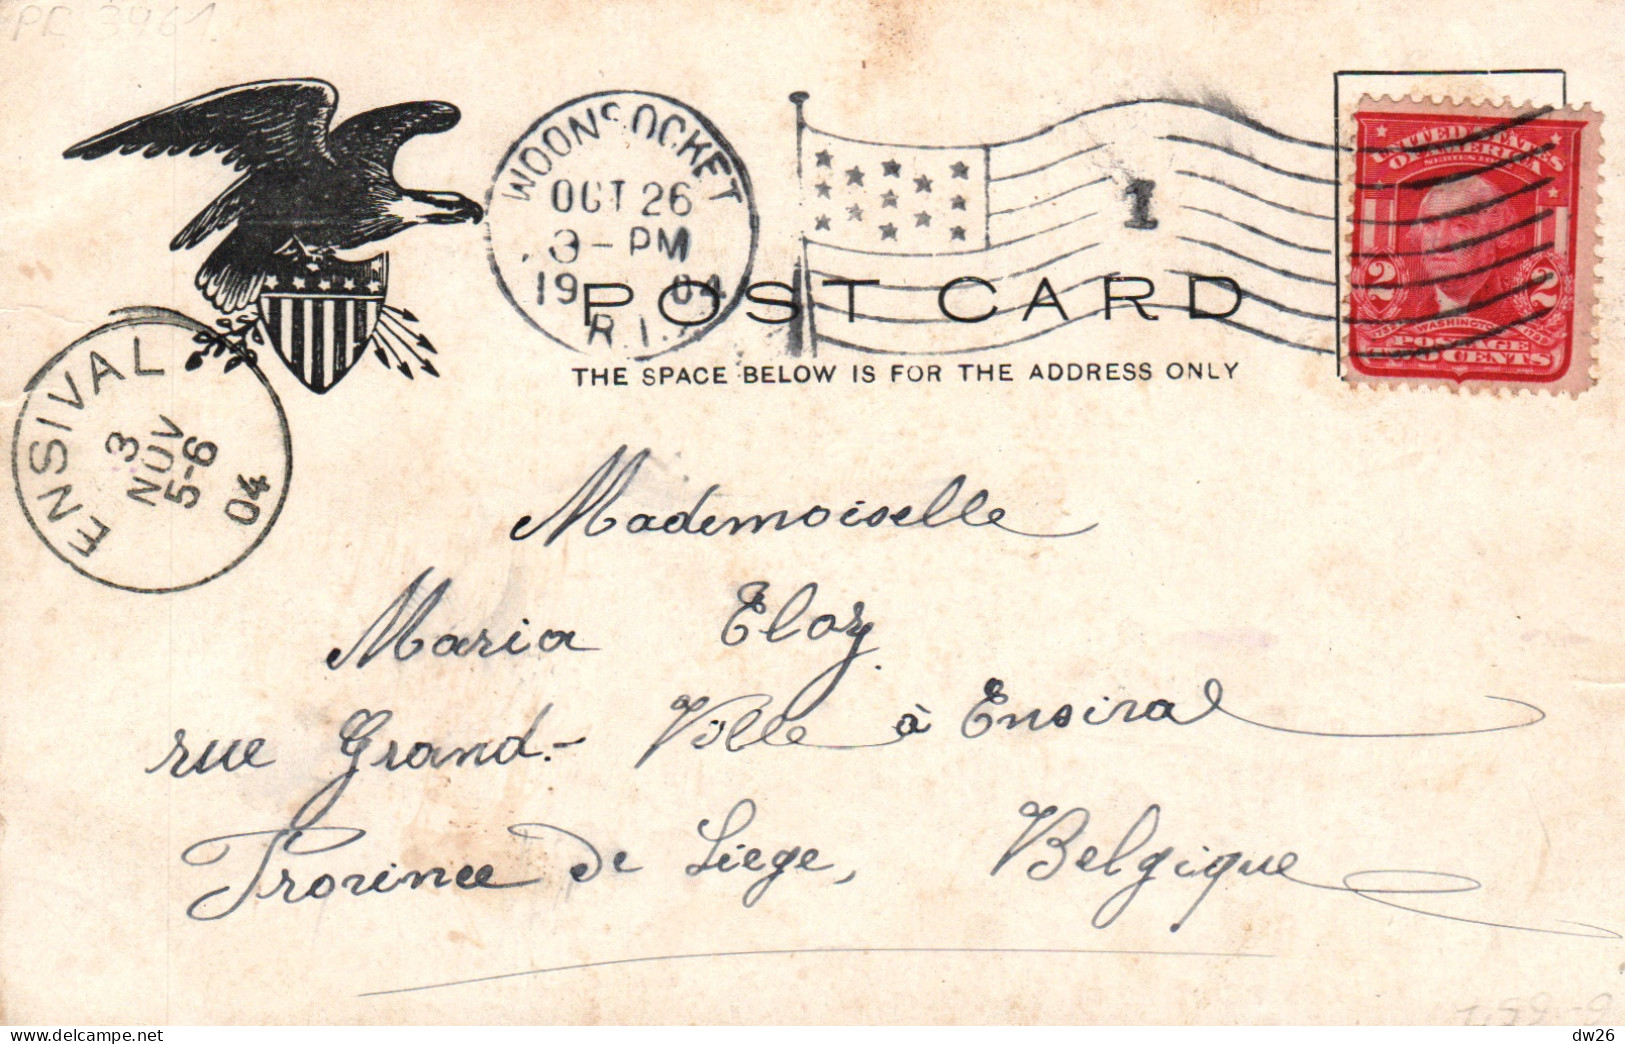 PC 3961
WOONSOCKET
OCT 26
3-PM
1904
R.I.
1
UNITED STATES
OF AMERICA
2 2
WASHINGTON
POSTAGE
TWO CENTS
POST CARD
THE SPACE BELOW IS FOR THE ADDRESS ONLY
ENSIVAL
3
NOV
5-6
04
Mademoiselle
Maria Eloy
rue Grand-Ville à Ensival
Province de Liege,
Belgique
dw26